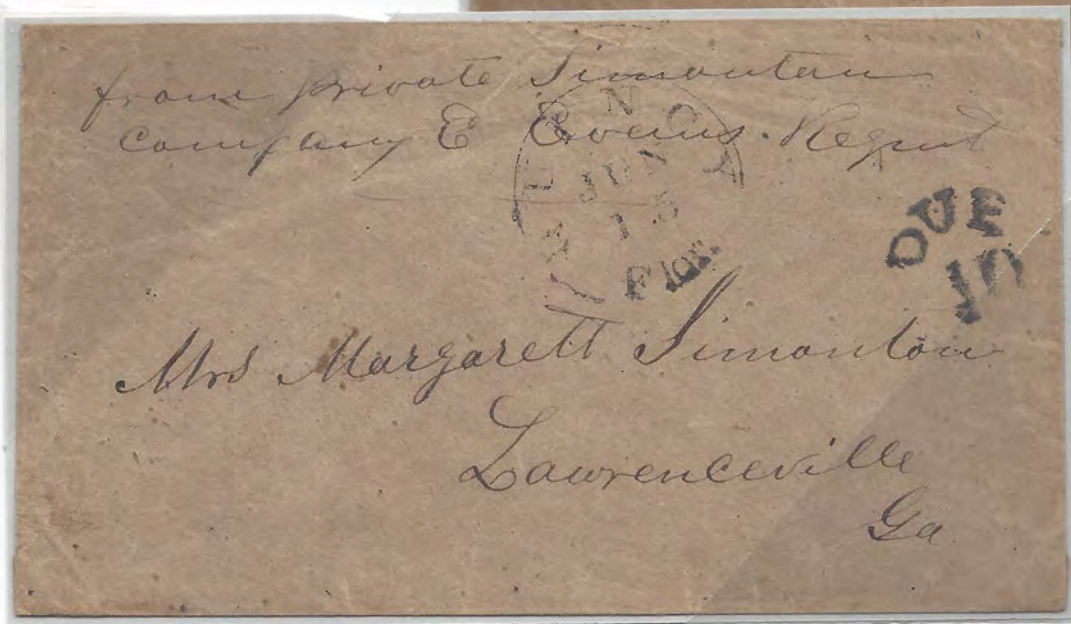 from private Simontan
Company E Evans Regmt
QUINCY
JUN
15
Flor.
DUE
10
Mrs Margarett Simonton
Lawrenceville
Ga